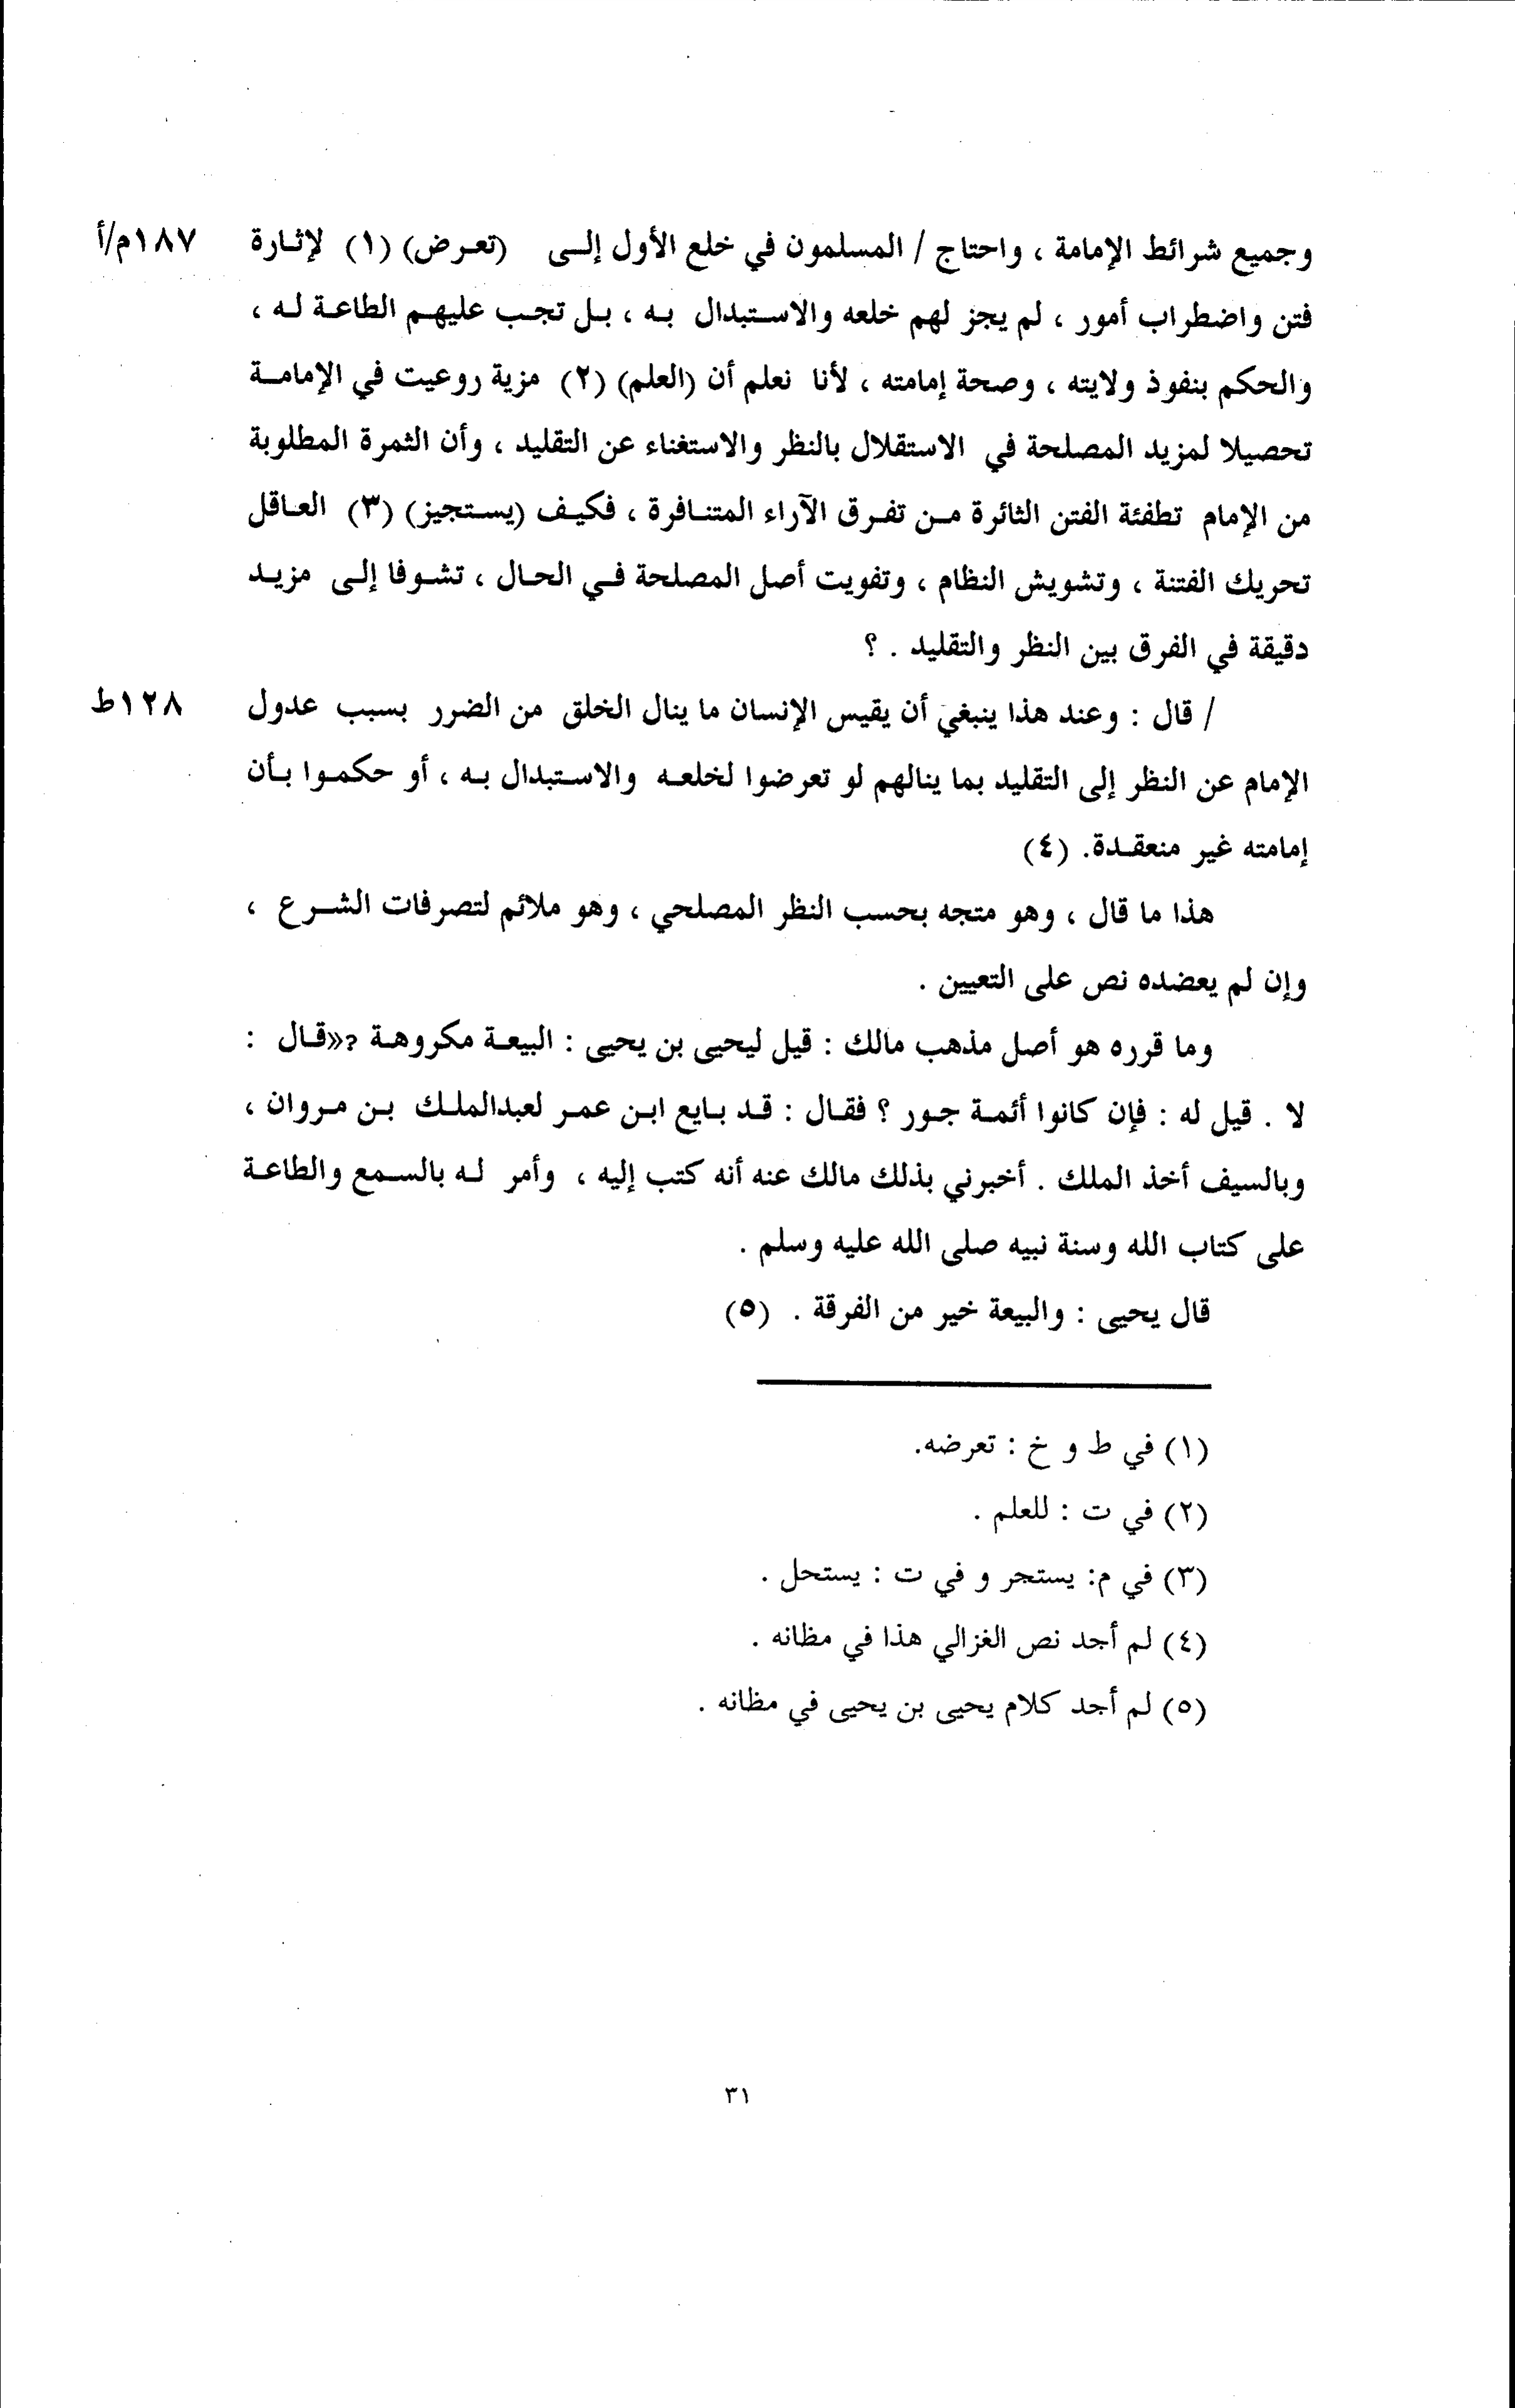 وجميع شرائط الإمامة ، واحتاج / المسلمون في خلع الأول إلى (تعرض) (١) لإثارة ١٨٧م/أ
فتن واضطراب أمور ، لم يجز لهم خلعه والاستبدال به ، بل تجب عليهم الطاعة له ،
والحكم بنفوذ ولايته ، وصحة إمامته ، لأنا نعلم أن (العلم) (٢) مزية روعيت في الإمامة
تحصيلا لمزيد المصلحة في الاستقلال بالنظر والاستغناء عن التقليد ، وأن الثمرة المطلوبة
من الإمام تطفئة الفتن الثائرة من تفرق الآراء المتنافرة ، فكيف (يستجيز) (٣) العاقل
تحريك الفتنة ، وتشويش النظام ، وتفويت أصل المصلحة في الحال ، تشوفا إلى مزيد
دقيقة في الفرق بين النظر والتقليد . ؟
/ قال : وعند هذا ينبغي أن يقيس الإنسان ما ينال الخلق من الضرر بسبب عدول ١٢٨ط
الإمام عن النظر إلى التقليد بما ينالهم لو تعرضوا لخلعه والاستبدال به ، أو حكموا بأن
إمامته غير منعقدة. (٤)
هذا ما قال ، وهو متجه بحسب النظر المصلحي ، وهو ملائم لتصرفات الشرع ،
وإن لم يعضده نص على التعيين .
وما قرره هو أصل مذهب مالك : قيل ليحيى بن يحيى : البيعة مكروهة ?«قال :
لا . قيل له : فإن كانوا أئمة جور ؟ فقال : قد بايع ابن عمر لعبدالملك بن مروان ،
وبالسيف أخذ الملك . أخبرني بذلك مالك عنه أنه كتب إليه ، وأمر له بالسمع والطاعة
على كتاب الله وسنة نبيه صلى الله عليه وسلم .
قال يحيى : والبيعة خير من الفرقة . (٥)
(١) في ط و خ : تعرضه.
(٢) في ت : للعلم .
(٣) في م: يستجر و في ت : يستحل .
(٤) لم أجد نص الغزالي هذا في مظانه .
(٥) لم أجد كلام يحيى بن يحيى في مظانه .
٣١